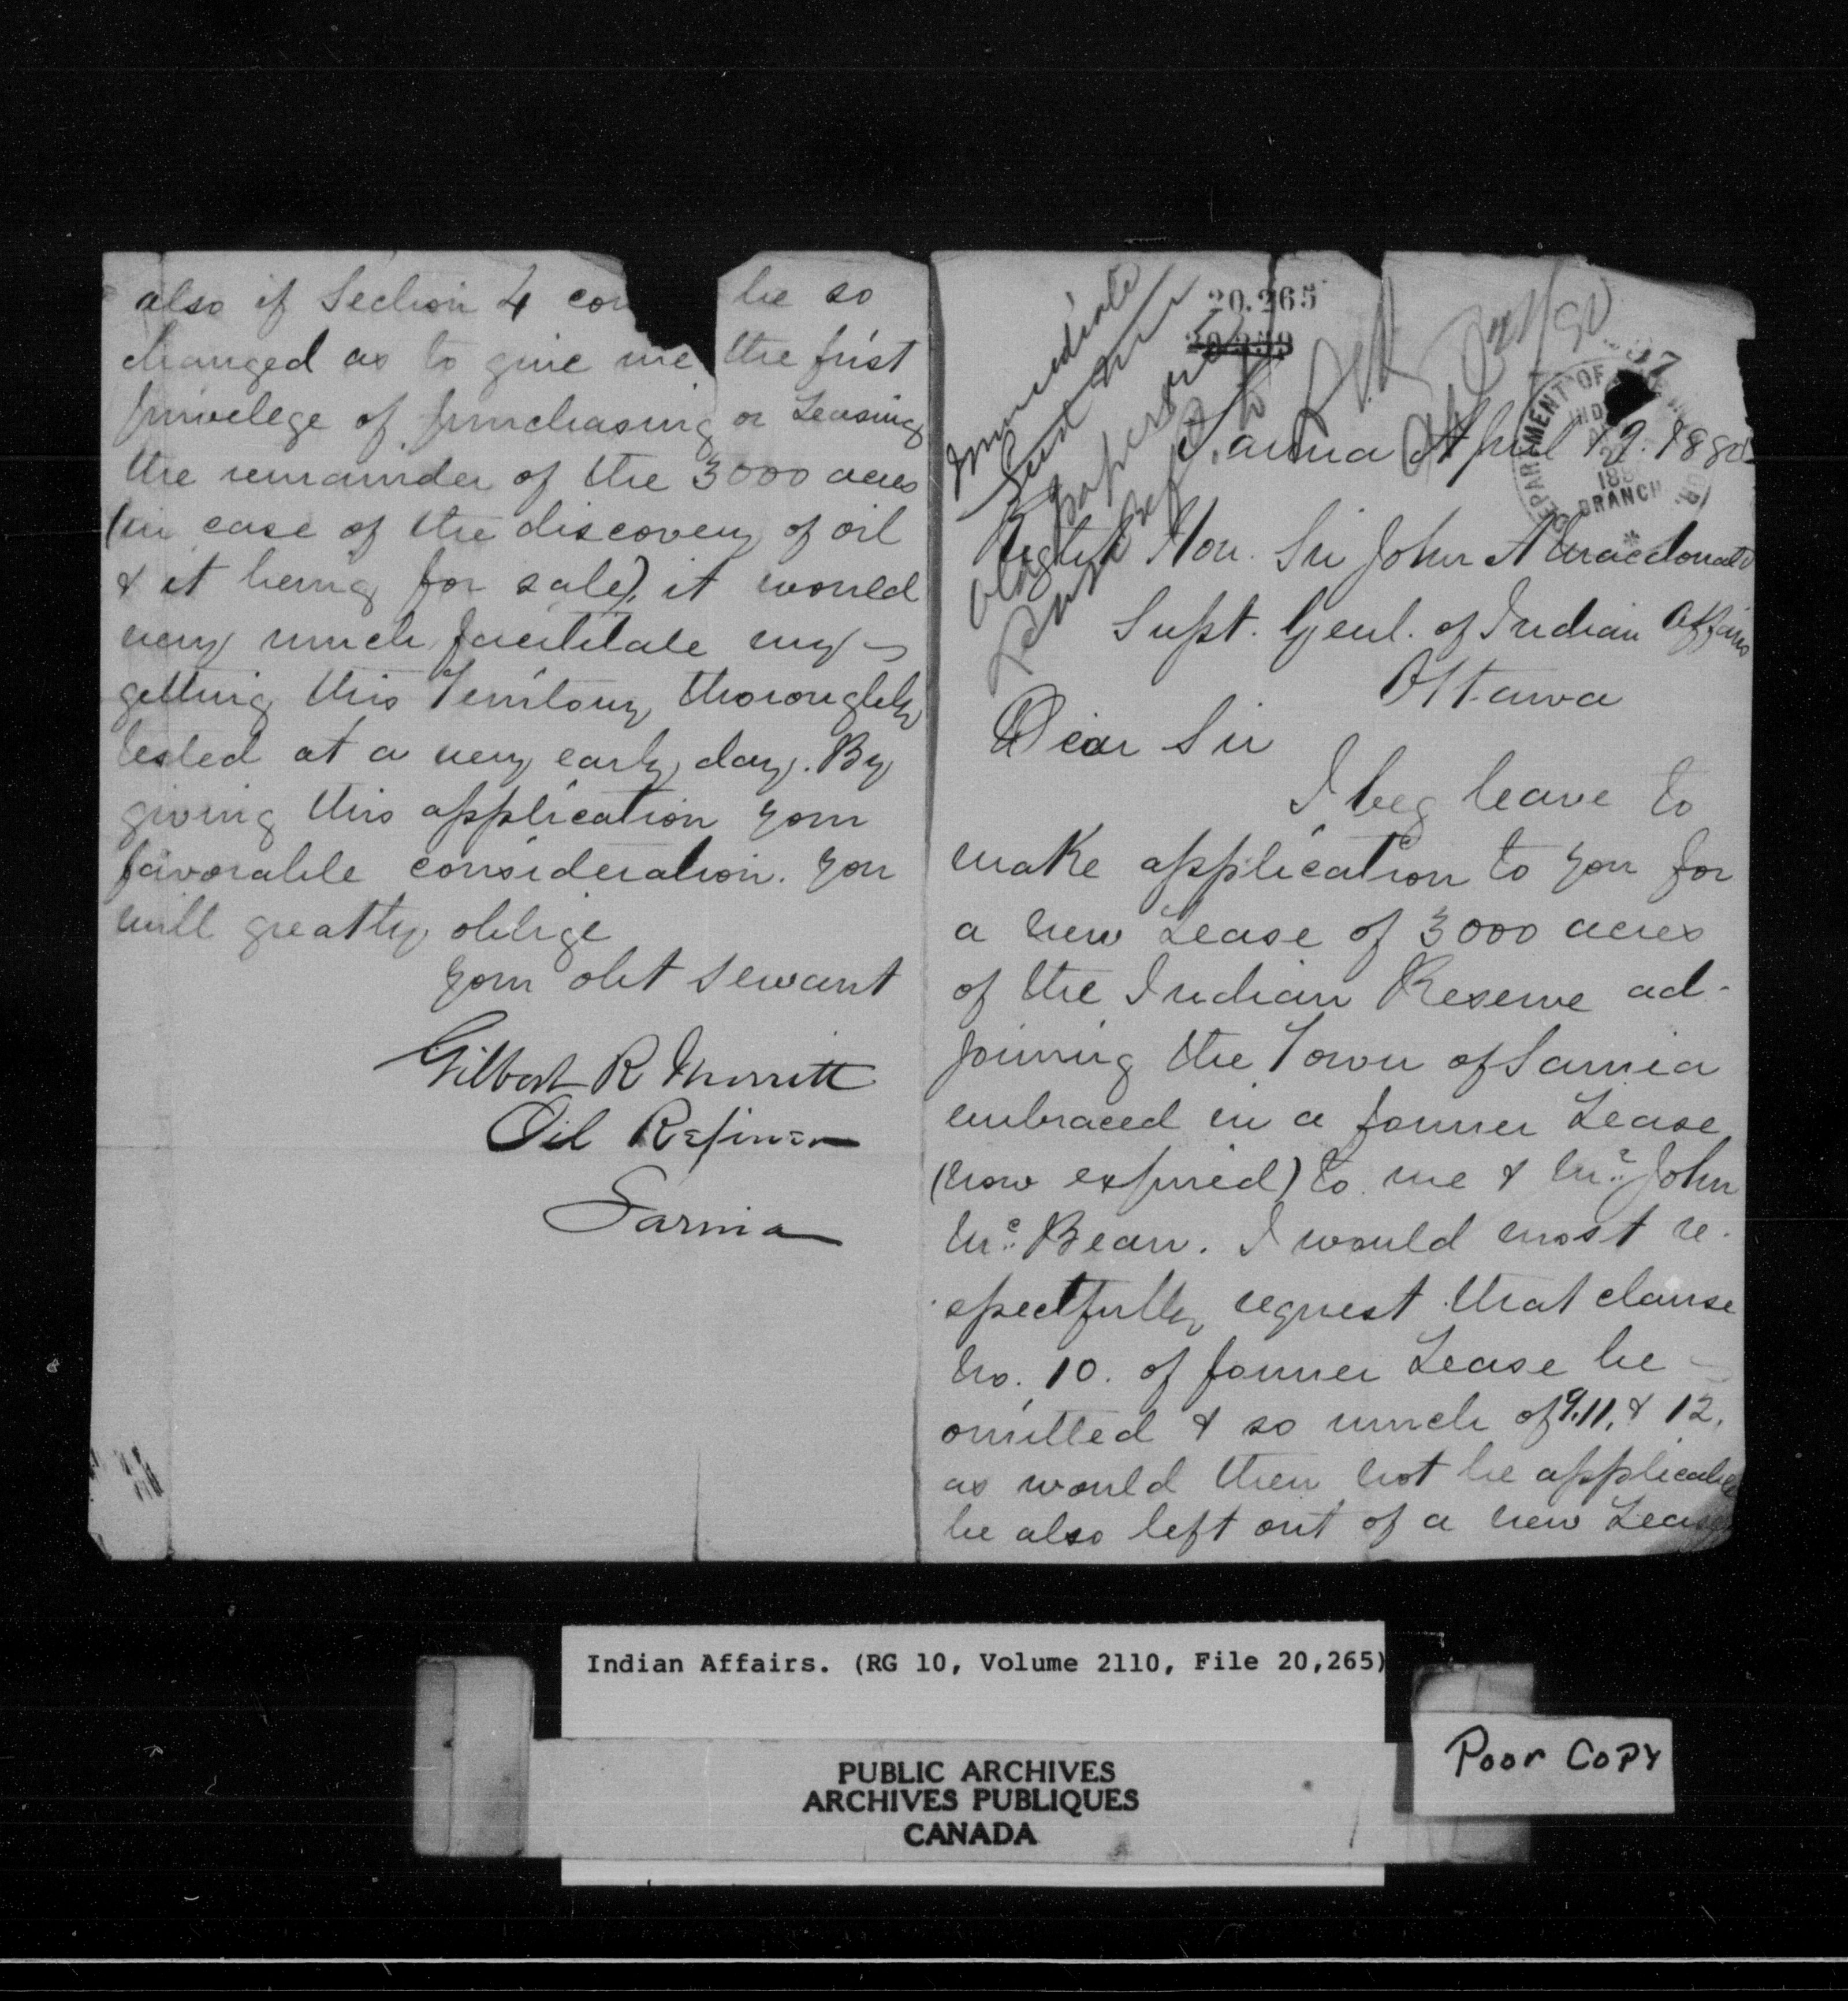 20.265
Immediate
Sarnia April 19. 1880
DEPARTMENT OF
BRANCH
Right Hon. Sir John A Macdonald
Supt. Genl. of Indian Affairs
Ottawa
Dear Sir
I beg leave to
make application to you for
a new Lease of 3000 acres
of the Indian Reserve ad-
joining the Town of Sarnia
embraced in a former Lease
(now expired) to me & Mr. John
Mc. Bean. I would most re-
spectfully request that clause
No. 10. of former Lease be
omitted & so much of 9.11. & 12.
as would then not be applicable
be also left out of a new Lease
also if Section 4 cou be so
changed as to give me the first
privelege of purchasing or Leasing
the remainder of the 3000 acres
(in case of the discovery of oil
& it being for sale), it would
very much facilitate my
getting this Territory thoroughly
tested at a very early day. By
giving this application your
favorable consideration. you
will greatly oblige
your obt servant
Gilbert R Merritt
Oil Refiner
Sarnia
Indian Affairs. (RG 10, Volume 2110, File 20,265)
PUBLIC ARCHIVES
ARCHIVES PUBLIQUES
CANADA
Poor Copy